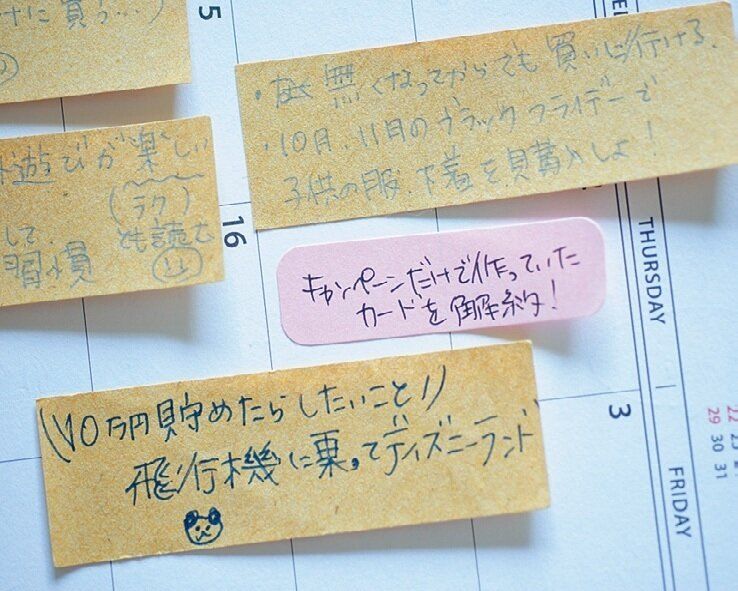 けに買う…)
5
・底無くなってからでも買いに行ける。
・10月、11日のブラックフライデーで
子供の服、下着を買購入しよ!
遊びが楽しい
(ラク)
して、とも読む
習慣
16
キャンペーンだけで作っていた
カードを解約!
\\10万円貯めたらしたいこと//
飛行機に乗ってディズニーランド
THURSDAY
3
FRIDAY
22
29
30
31